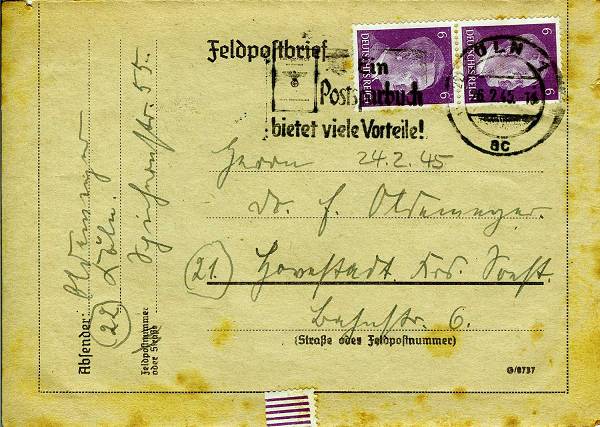 Feldpostbrief
6 DEUTSCHES REICH 6
6 DEUTSCHES REICH 6
KÖLN 1
26.2.45
ac
Ein
Postsparbuch
bietet viele Vorteile!
24.2.45
Herrn
Dr. F. Oldemeyer.
(21) Hovestadt. Krs. Soest.
Bahnstr. 6.
(Straße oder Feldpostnummer)
G/0737
Absender: Oldemeyer
(22) Köln.
Spichernstr. 55.
Feldpostnummer
oder Straße